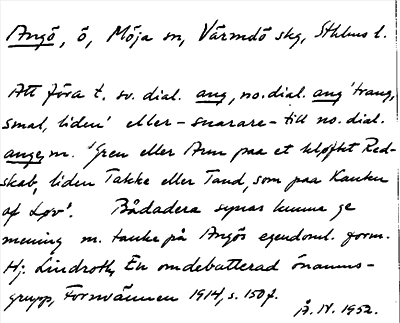 Angö, ö, Möja sn, Värmdö skg, Sthlms l.
Att föra t. sv. dial. ang, no. dial. ang 'trang,
smal, liden' eller – snarare – till no. dial.
ange m. 'Gren eller Arm paa et kløftet Red-
skab, liden Takke eller Tand, som paa Kanten
af Løv'. Bådadera synes kunna ge
mening m. tanke på Angös egendoml. form.
Hj. Lindroth, En omdebatterad önamns-
grupp, Fornvännen 1914, s. 150 f.
Å. N. 1952.